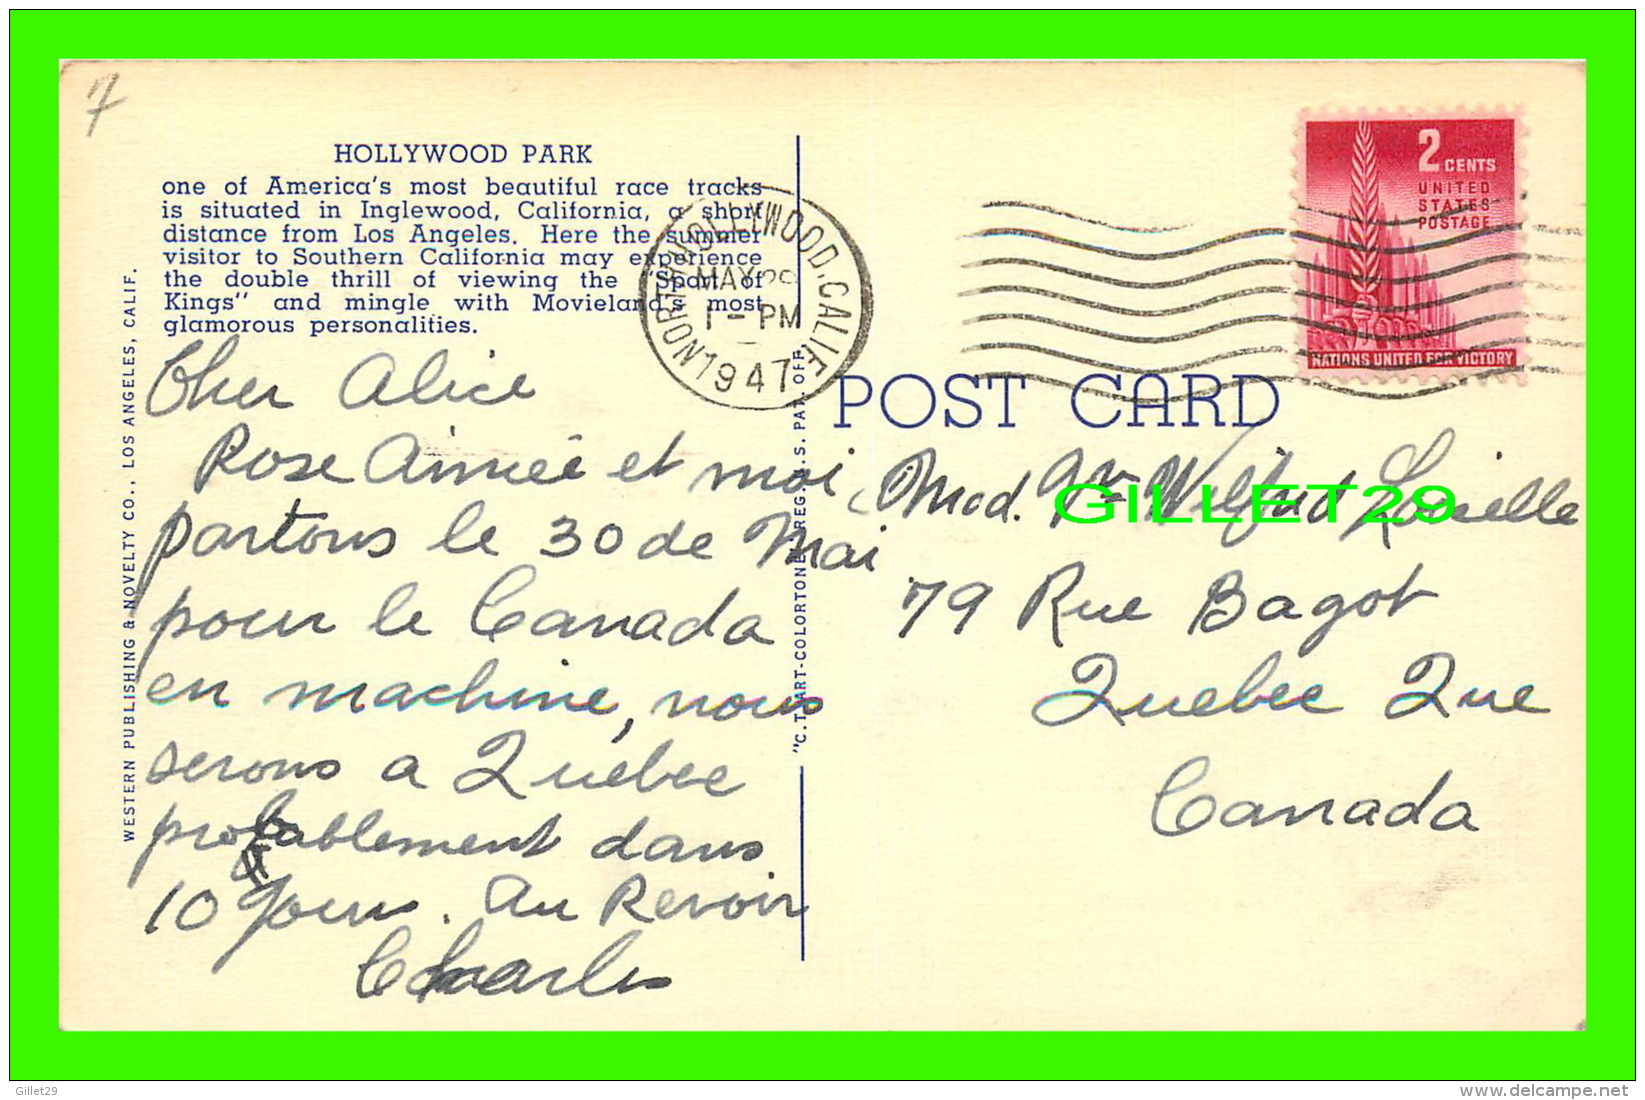 7
HOLLYWOOD PARK
one of America's most beautiful race tracks
is situated in Inglewood, California, a short
distance from Los Angeles. Here the summer
visitor to Southern California may experience
the double thrill of viewing the "Sport of
Kings" and mingle with Movieland's most
glamorous personalities.
Cher Alice
Rose Aimée et moi
partons le 30 de Mai
pour le Canada
en machine, nous
serons a Quebec
probablement dans
10 Jours. Au Revoir
Charles
WESTERN PUBLISHING & NOVELTY CO., LOS ANGELES, CALIF.
"C.T. ART-COLORTONE" REG. U.S. PAT. OFF.
NORTH HOLLYWOOD, CALIF.
MAY
1 - PM
1947
2 CENTS
UNITED
STATES
POSTAGE
NATIONS UNITED FOR VICTORY
POST CARD
Mad. Wilfrid Loiselle
79 Rue Bagot
Quebec Que
Canada
GILLET29
Gillet29
www.delcampe.net